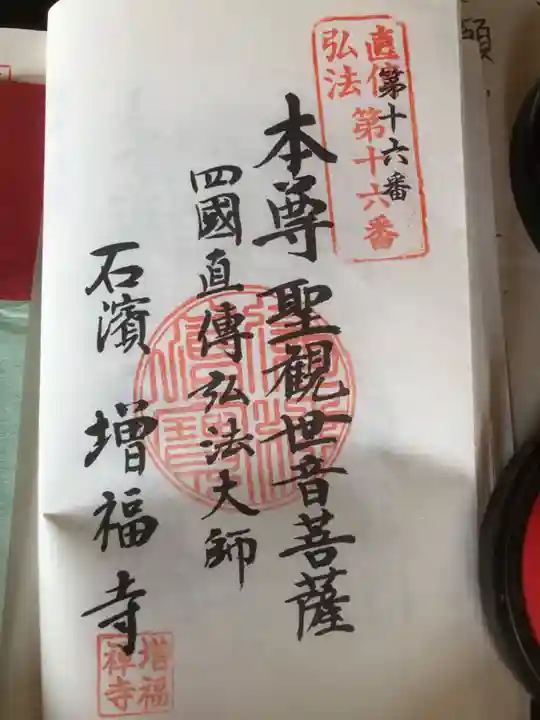 直伝弘法
第十六番
第十六番
本尊聖観世音菩薩
四國直傳弘法大師
石濱 増福寺
増福
禅寺
願